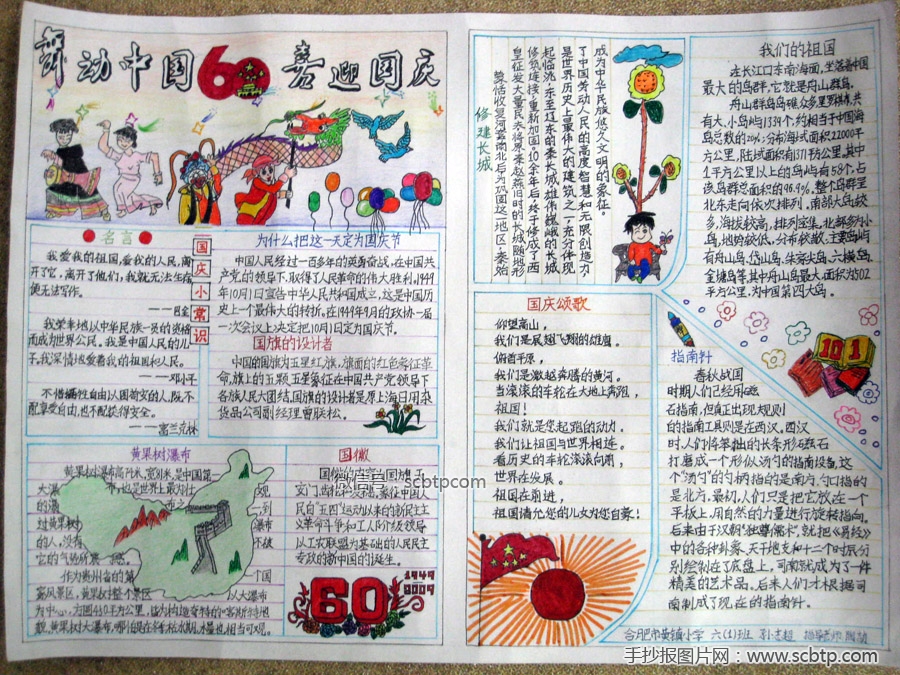 舞动中国60喜迎国庆
名言
我爱我的祖国,爱我的人民,离
开了它,离开了他们,我就无法生存,
便无法写作。
——巴金
我荣幸地以中华民族一员的资格
而成为世界公民。我是中国人民的儿
子。我深情地爱着我的祖国和人民。
——邓小平
不惜牺牲自由以图苟安的人,既不
配享受自由,也不配获得安全。
——富兰克林
国庆小常识
为什么把这一天定为国庆节
中国人民经过一百多年的英勇奋战,在中国共
产党的领导下,取得了人民革命的伟大胜利。1949
年10月1日宣告中华人民共和国成立,这是中国历
史上一个最伟大的转折。在1949年9月的政协一届
一次会议上决定把10月1日定为国庆节。
国旗的设计者
中国的国旗为五星红旗,旗面的红色象征革
命,旗上的五颗五星象征在中国共产党领导下
各族人民大团结,国旗的设计者是原上海日用杂
货品公司副经理曾联松。
黄果树瀑布
作为贵州省的第
国徽
安门、齿轮和麦穗,象征中国人
民自“五四”运动以来的新民主主
义革命斗争和工人阶级领导
以工农联盟为基础的人民民主
专政的新中国的诞生。
1949
2009
60
修建长城
秦始
皇征发大量民夫将原秦赵燕旧时的长城随地形
修筑连接,重新加固。10余年后,终于修成了西
起临洮,东至辽东的秦长城。雄伟巍峨的长城
是世界历史上最伟大的建筑之一,充分体现
了中国劳动人民的高度智慧和无限创造力
成为中华民族悠久文明的象征。
我们的祖国
在长江口东南海面,坐落着中国
最大的岛群,它就是舟山群岛。
共有大、小岛屿1339个,约相当于中国海
岛总数的20%;分布海域面积22000平
方公里,陆域面积有1371平方公里。其中
1平方公里以上的岛屿有58个,占
该岛群总面积的96.9%。整个岛群呈
北东走向依次排列。南部大岛较
多,海拔较高,排列密集,北部多为小
岛,地势较低,分布较散,主要岛屿
有舟山岛、岱山岛、朱家尖岛、六横岛、
金塘岛等,其中舟山岛最大,面积为502
平方公里,为中国第四大岛。
国庆颂歌
仰望高山,
我们是展翅飞翔的雄鹰。
俯首平原,
我们是激越奔腾的黄河。
当滚滚的车轮在大地上奔驰,
祖国!
我们就是您起跑的动力。
我们让祖国与世界相连。
看历史的车轮滚滚向前,
世界在发展。
祖国在前进,
祖国请允您的儿女为您自豪!
101
指南针
春秋战国
时期人们已经用磁
石指南,但真正出现规则
的指南工具则是在西汉,西汉
时,人们将笨拙的长条形磁石
打磨成一个形似汤勺的指南设备,这
个“汤勺”的勺柄指的是南方,勺口指的
是北方。最初,人们只是把它放在一个
平板上,用自然的力量进行旋转指向。
后来由于汉朝“独尊儒术”,就把《易经》
中的各种卦象、天干地支和十二个时辰分
别绘制在了底盘上,司南就成为了一件
精美的艺术品。后来人们才根据司
南制成了现在的指南针。
合肥市黄镇小学 六(1)班
微信号 scbtpcom
手抄报图片网:www.scbtp.com